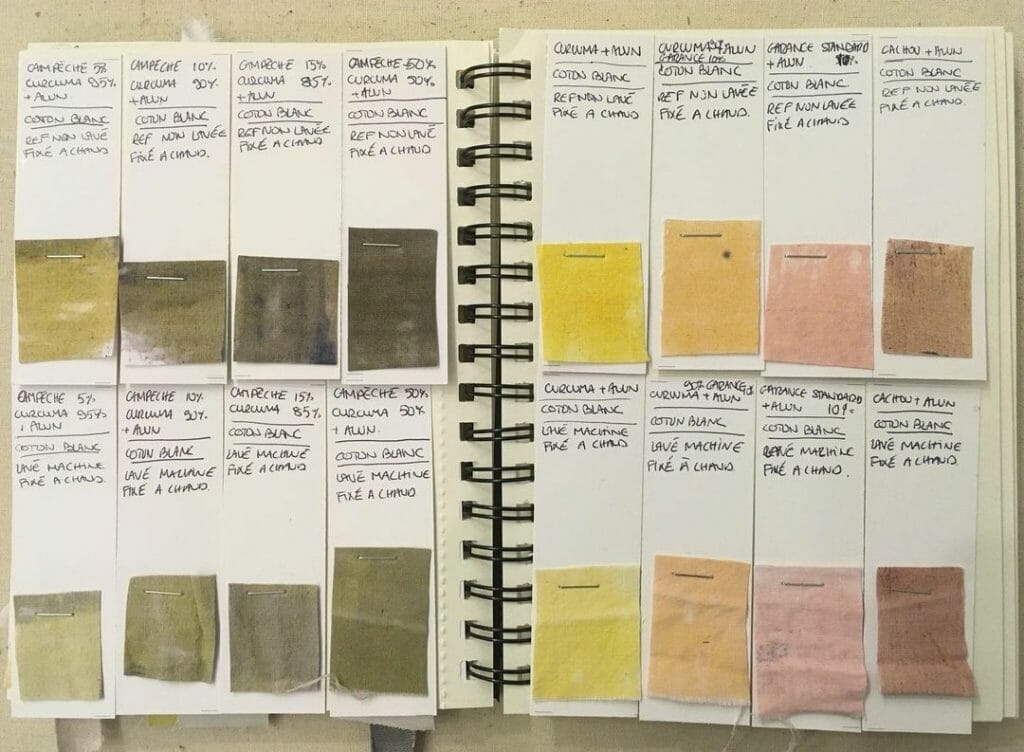 CAMPÈCHE 5%
CURCUMA 95%
+ ALUN
COTON BLANC
REF NON LAVÉ
FIXÉ A CHAND
CAMPÈCHE 10%
CURCUMA 90%
+ ALUN
COTON BLANC
REF NON LAVÉE
FIXÉ A CHAND.
CAMPÈCHE 15%
CURCUMA 85%
+ ALUN
COTON BLANC
REF NON LAVÉE
FIXÉ A CHAND
CAMPÈCHE 50%
CURCUMA 50%
+ ALUN
COTON BLANC
REF NON LAVÉ
FIXÉ A CHAND
CURCUMA + ALUN
COTON BLANC
REF NON LAVÉ
FIXÉ A CHAND
CURCUMA + ALUN
GARANCE 10%
COTON BLANC
REF NON LAVÉE
FIXÉ A CHAND.
GARANCE STANDARD
+ ALUN 10%
COTON BLANC
REF NON LAVÉE
FIXÉ A CHAND
CACHOU + ALUN
COTON BLANC
REF NON LAVÉE
FIXÉ A CHAND.
CAMPÈCHE 5%
CURCUMA 95%
+ ALUN
COTON BLANC
LAVÉ MACHINE
FIXÉ A CHAND.
CAMPÈCHE 10%
CURCUMA 90%
+ ALUN
COTON BLANC
LAVÉ MACHINE
FIXÉ A CHAND.
CAMPÈCHE 15%
CURCUMA 85%
COTON BLANC
LAVÉ MACHINE
FIXÉ A CHAND.
CAMPÈCHE 50%
CURCUMA 50%
+ ALUN.
COTON BLANC
LAVÉ MACHINE
FIXÉ A CHAND.
CURCUMA + ALUN
COTON BLANC
LAVÉ MACHINE
FIXÉ A CHAND
GARANCE
CURCUMA + ALUN
COTON BLANC
LAVÉ MACHINE
FIXÉ A CHAND.
GARANCE STANDARD
+ ALUN 10%
COTON BLANC
MACHINE
FIXÉ A CHAND.
CACHOU + ALUN
COTON BLANC
LAVÉ MACHINE
FIXÉ A CHAND.